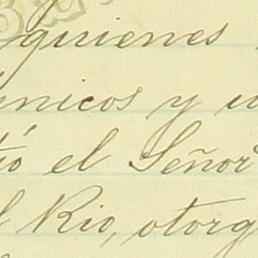 quienes
únicos y u
ó el Señor
l Rio, otorg